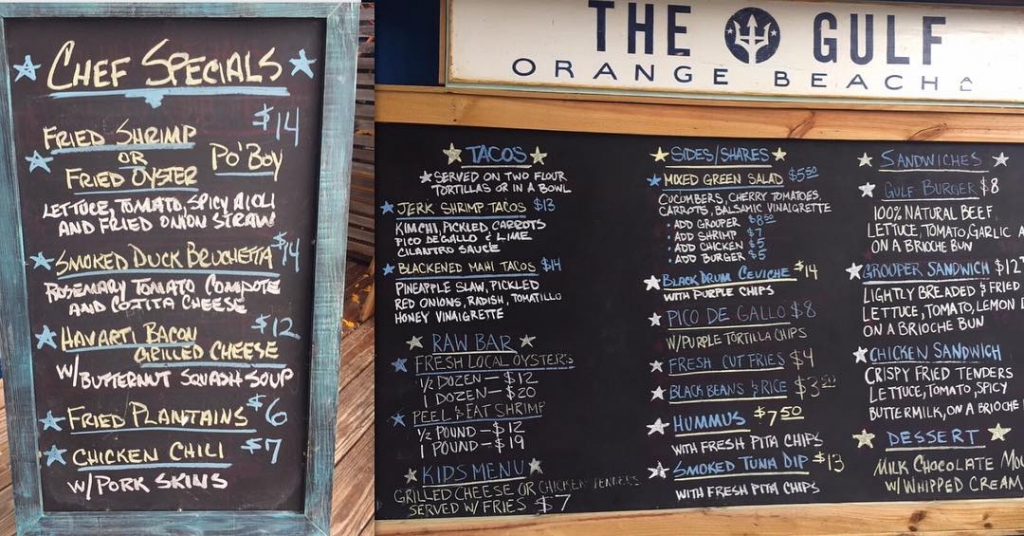 CHEF SPECIALS
FRIED SHRIMP $14
OR PO'BOY
FRIED OYSTER
LETTUCE, TOMATO, SPICY AIOLI
AND FRIED ONION STRAW
SMOKED DUCK BRUCHETTA $14
ROSEMARY TOMATO COMPOTE
AND COTITA CHEESE
HAVARTI BACON $12
GRILLED CHEESE
W/BUTTERNUT SQUASH SOUP
FRIED PLANTAINS $6
CHICKEN CHILI $7
W/PORK SKINS
THE GULF
ORANGE BEACH
TACOS
SERVED ON TWO FLOUR
TORTILLAS OR IN A BOWL
JERK SHRIMP TACOS $13
KIMCHI, PICKLED CARROTS
PICO DE GALLO & LIME
CILANTRO SAUCE
BLACKENED MAHI TACOS $14
PINEAPPLE SLAW, PICKLED
RED ONIONS, RADISH, TOMATILLO
HONEY VINAIGRETTE
RAW BAR
FRESH LOCAL OYSTERS
1/2 DOZEN - $12
1 DOZEN - $20
PEEL & EAT SHRIMP
1/2 POUND - $12
1 POUND - $19
KIDS MENU
GRILLED CHEESE OR CHICKEN TENDERS
SERVED W/ FRIES $7
SIDES/SHARES
MIXED GREEN SALAD $5.50
CUCUMBERS, CHERRY TOMATOES,
CARROTS, BALSAMIC VINAIGRETTE
• ADD GROUPER $8.50
• ADD SHRIMP $7
• ADD CHICKEN $5
• ADD BURGER $5
BLACK DRUM CEVICHE $14
WITH PURPLE CHIPS
PICO DE GALLO $8
W/PURPLE TORTILLA CHIPS
FRESH CUT FRIES $4
BLACK BEANS & RICE $3.50
HUMMUS $7.50
WITH FRESH PITA CHIPS
SMOKED TUNA DIP $13
WITH FRESH PITA CHIPS
SANDWICHES
GULF BURGER $8
100% NATURAL BEEF
LETTUCE, TOMATO, GARLIC A
ON A BRIOCHE BUN
GROUPER SANDWICH $12
LIGHTLY BREADED & FRIED
LETTUCE, TOMATO, LEMON
ON A BRIOCHE BUN
CHICKEN SANDWICH
CRISPY FRIED TENDERS
LETTUCE, TOMATO, SPICY
BUTTERMILK, ON A BRIOCHE
DESSERT
MILK CHOCOLATE MOU
W/ WHIPPED CREAM